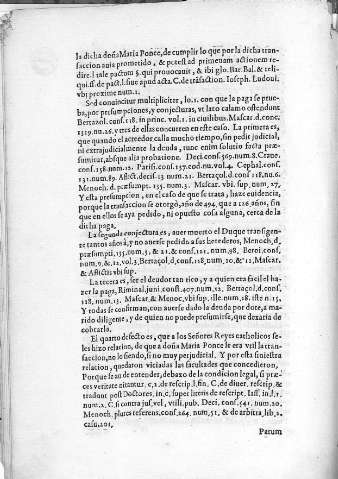 la dicha doña Maria Ponce, de cumplir lo que por la dicha tran-
saccion auia prometido, & potest ad primeuam actionem re-
dire. l. tale pactum §. qui prouocauit, & ibi glo. Bar. Bal. & reli-
qui. ff. de pact. l. siue apud acta. C. de trãsaction. Ioseph. Ludoui.
vbi proxime num. 2.
Sed conuincitur multipliciter, lo. 1. con que la paga se prue-
ba, por presumpciones, y conjecturas, vt lato calamo ostendunt
Bertazol. cons. 118. in princ. vol. 1. in ciuilibus. Mascar. d. conc.
1319. nu. 26. y tres de ellas concurren en este caso. La primera es,
que quando el acreedor calla mucho tiempo, sin pedir judicial,
ni extrajudicialmente la deuda, tunc enim solutio facta præ-
sumitur, absque alia probatione. Deci. cons. 369. num. 8. Crauc.
cons. 158. num. 12. Parisi. cons. 157. cod. nu. vol. 4. Cephal. cons.
131. num. 89. Afflict. deci. 13. num. 21. Bertaçol. d. cons. 118. nu. 6.
Menoch. d. præsumpt. 135. num. 3. Mascar. vbi sup. num. 27.
Y esta presumpcion, en el caso de que se trata, haze euidencia,
porque la transaccion se otorgó, año de 494. que a 126. años, sin
que en ellos se aya pedido, ni opuesto cosa alguna, cerca de la
dicha paga.
La segunda conjectura es, auer muerto el Duque transigen-
te tantos años à, y no auerse pedido a sus herederos, Menoch. d.
præsumpt. 135. num. 5. & 21. & cons. 121. num. 98. Beroi. cons.
num. 9. & 12. vol. 3. Bertaçol. d. cons. 118. num. 10. & 12. Mascar.
& Afflictis vbi sup.
La tercera es, ser el deudor tan rico, y a quien era facil el ha-
zer la paga, Riminal. juni. const. 407. num. 12. Bertaçol. d. cons.
118. num. 13. Mascar. & Menoc. vbi sup. ille. num. 28. iste n. 15.
Y todas se confirman, con auerse dado la deuda por dote, a ma-
rido diligente, y de quien no puede presumirse, que dexaria de
cobrarlo.
El quarto defecto es, que a los Señores Reyes catholicos se
les hizo relacion, de que a doña Maria Ponce le era vtil la tran-
saccion, no lo siendo, si no muy perjudicial. Y por esta siniestra
relacion, quedaron viciadas las facultades que concedieron,
Porque se an de entender, debaxo de la condicion legal, si præ-
ces veritate nitantur. c. 2. de rescrip. l. fin. C. de diuer. rescrip. &
tradunt post Doctores, in c. super literis de rescript. Iass. in l. 1.
num. 2. C. si contra jus, vel, vtili. pub. Deci. cons. 541. num. 20.
Menoch. plures referens. cons. 264. num. 51. & de arbitra. lib. 2.
casu. 201.
Parum